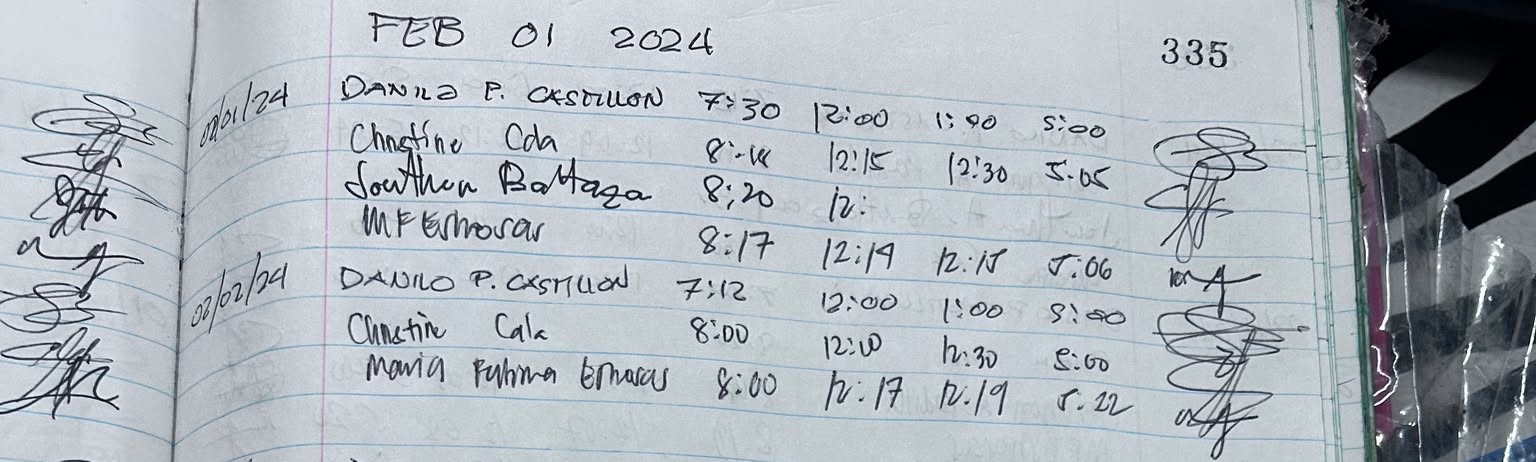 FEB 01 2024
335
02/01/24 DANILO P. CASTILLON 7:30 12:00 1:00 5:00
Christine Cala 8:18 12:15 12:30 5:05
8:20 12:
MF 8:17 12:14 12:15 5:06
02/02/24 DANILO P. CASTILLON 7:12 12:00 1:00 5:00
Christine Cala 8:00 12:10 12:30 5:00
Maria 8:00 12:17 12:19 5:22